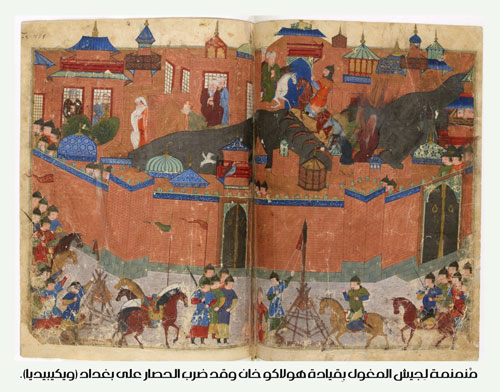 مُنمنمة لجيش المغول بقيادة هولاكو خان وقد ضرب الحصار على بغداد (ويكيبيديا).